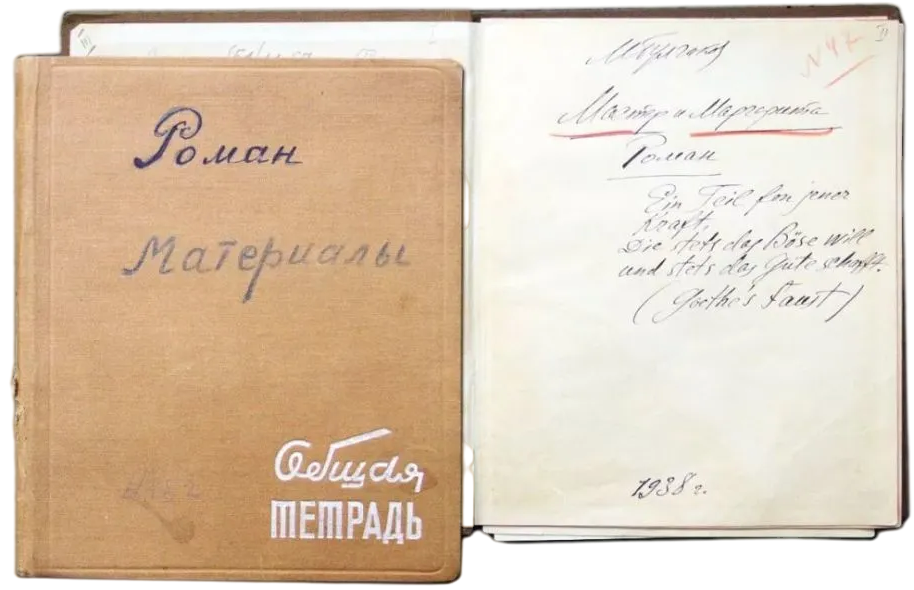 Роман
Материалы
Общая
ТЕТРАДЬ
II
N47
МБулгаков
Мастер и Маргарита
Роман
Ein Teil fon jener
Kraft,
Die stets das Böse will
und stets das Gute schafft.
(Goethe's Faust)
1938 г.